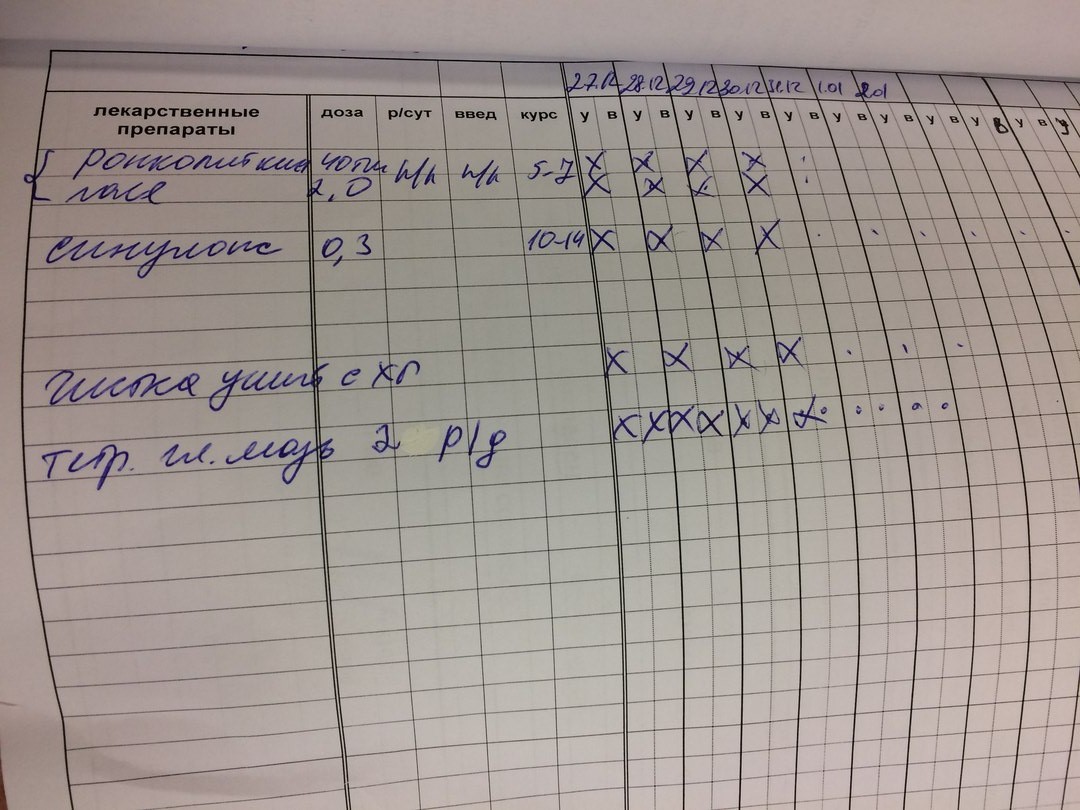 27.12 28.12 29.12 30.12 31.12 1.01 2.01
лекарственные препараты доза р/сут введ курс у в у в у в у в у в у в у в у в у в у в у
Ронколейкин 40тыс п/к п/к 5-7 X X X X
2,0 X X X X
Синулокс 0,3 10-14 X X X X
Чистка ушей с ХГ X X X X
тетр. гл. мазь 2 р/д X X X X X X X